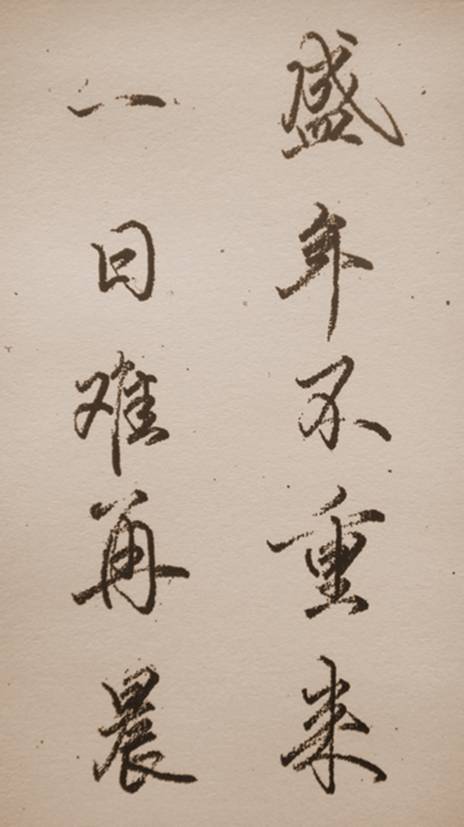 盛年不重来
一日难再晨